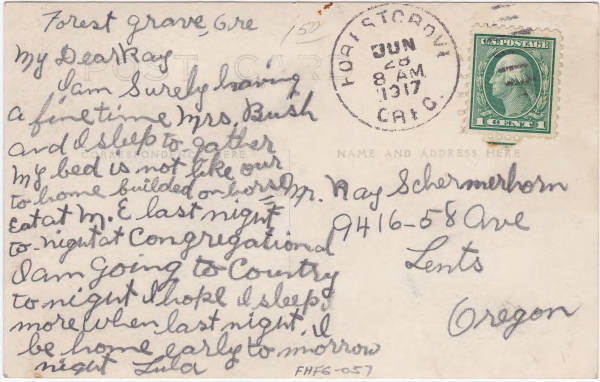 Forest Grove, Ore
150
My Dear Ray
I am Surely having
a fine time Mrs. Bush
and I sleep to-gather
My bed is not like our
to home builded on horse
Eat at M. E last night
to-night at Congregational
I am going to Country
to night I hope I sleep
more when last night. I
be home early to morrow
night Lula
FHFG-057
POST CARD
CORRESPONDENCE HERE
NAME AND ADDRESS HERE
FOREST GROVE
JUN
28
8 AM
1917
OREG.
U.S. POSTAGE
1 CENT 1
Mr. Ray Schermerhorn
9416-58 Ave
Lents
Oregon